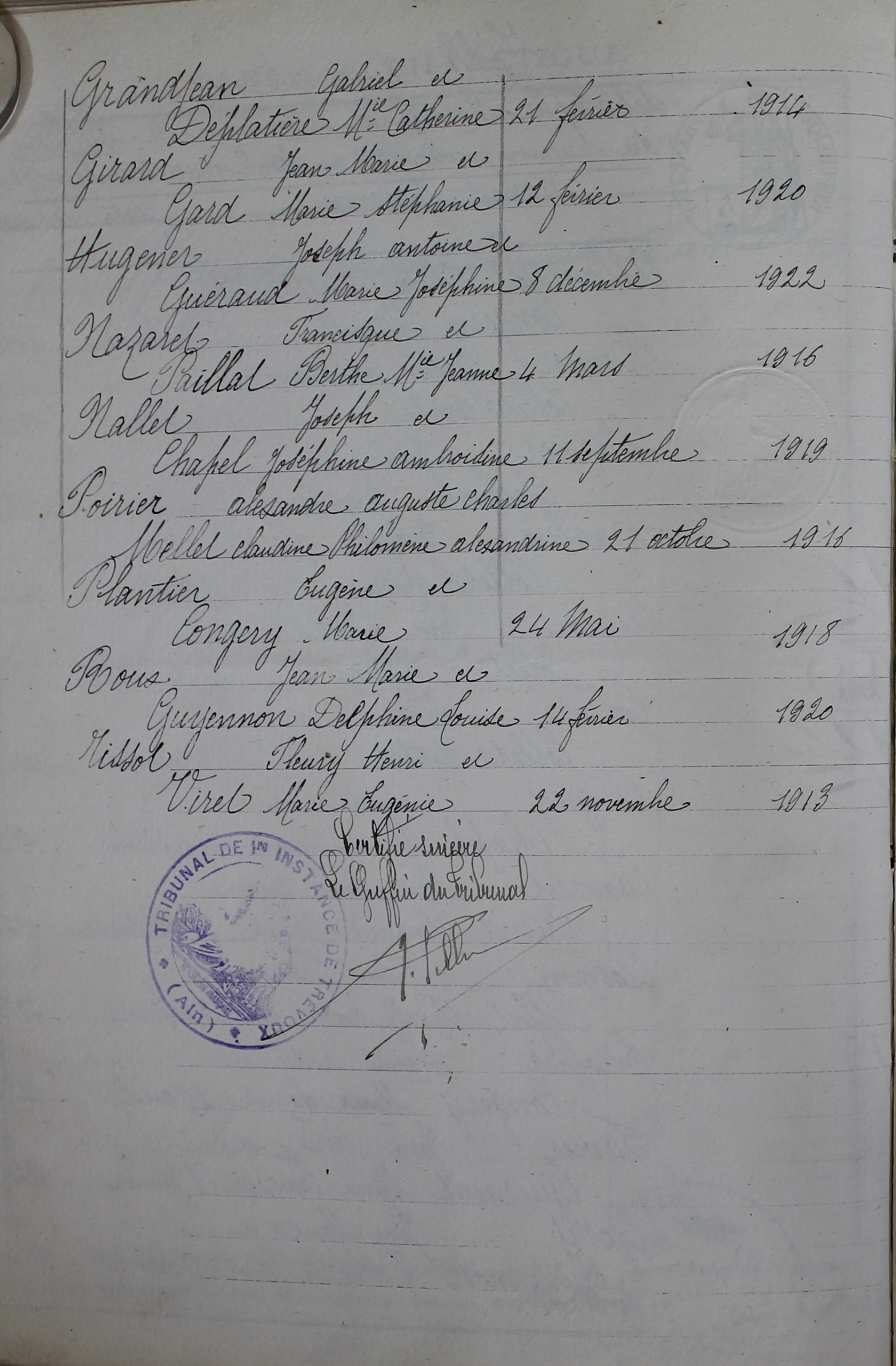 Grandjean Gabriel et
Déplatière Mie Catherine 21 février 1914
Girard Jean Marie et
Gard Marie Stéphanie 12 février 1920
Hugener Joseph antoine et
Guéraud Marie Joséphine 8 décembre 1922
Nazaret Francisque et
Paillat Berthe Mie Jeanne 4 Mars 1916
Nallet Joseph et
Chapel Joséphine ambroisine 11 septembre 1919
Poirier alexandre auguste charles
Mellet claudine Philomène alexandrine 21 octobre 1916
Plantier Eugène et
Congery Marie 24 Mai 1918
Roux Jean Marie et
Guyennon Delphine Louise 14 février 1920
Tissot Fleury Henri et
Viret Marie Eugénie 22 novembre 1913
Certifié sincère
Le Greffier du tribunal
TRIBUNAL DE 1re INSTANCE DE TRÉVOUX
(Ain)